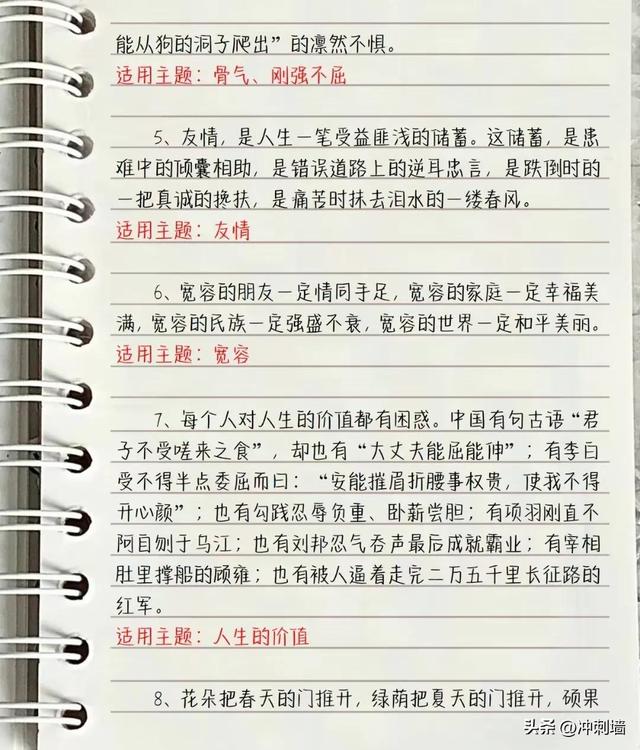 能从狗的洞子爬出”的凛然不惧。
适用主题：骨气、刚强不屈
5、友情，是人生一笔受益匪浅的储蓄。这储蓄，是患
难中的倾囊相助，是错误道路上的逆耳忠言，是跌倒时的
一把真诚的搀扶，是痛苦时抹去泪水的一缕春风。
适用主题：友情
6、宽容的朋友一定情同手足，宽容的家庭一定幸福美
满，宽容的民族一定强盛不衰，宽容的世界一定和平美丽。
适用主题：宽容
7、每个人对人生的价值都有困惑。中国有句古语“君
子不受嗟来之食”，却也有“大丈夫能屈能伸”；有李白
受不得半点委屈而曰：“安能摧眉折腰事权贵，使我不得
开心颜”；也有勾践忍辱负重、卧薪尝胆；有项羽刚直不
阿自刎于乌江；也有刘邦忍气吞声最后成就霸业；有宰相
肚里撑船的顾雍；也有被人逼着走完二万五千里长征路的
红军。
适用主题：人生的价值
8、花朵把春天的门推开，绿荫把夏天的门推开，硕果
头条 @冲刺墙